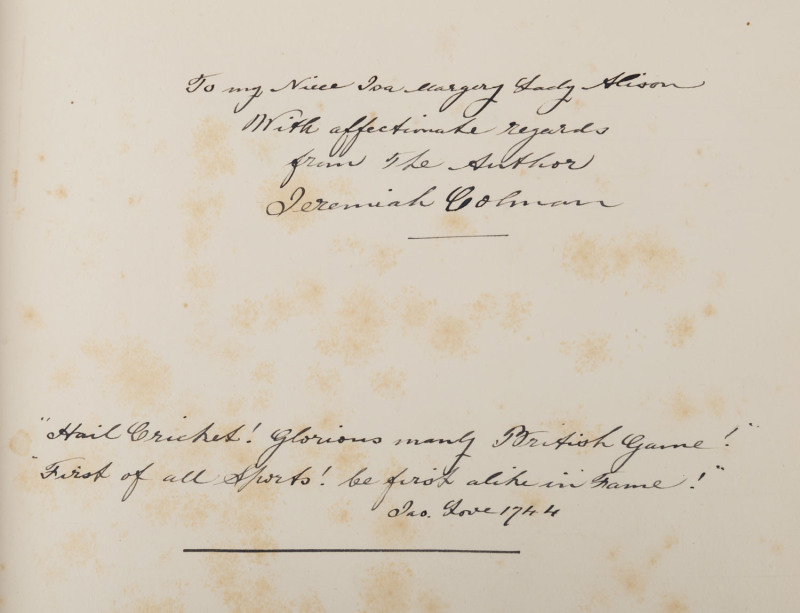 To my Niece Isa Margery Lady Alison
With affectionate regards
from The Author
Jeremiah Colman
"Hail Cricket! Glorious manly British Game!"
"First of all Sports! be first alike in Fame!"
Jas. Love 1744